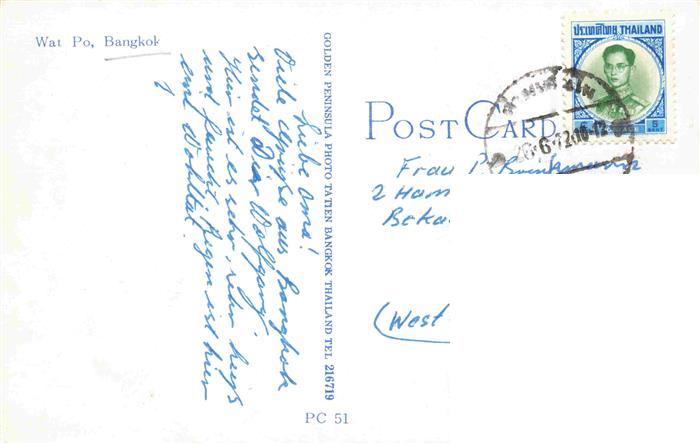 Wat Po, Bangkok
Liebe Oma!
Viele Grüsse aus Bangkok
sendet Dir Wolfgang.
Hier ist es sehr, sehr heiß
und feucht. Regen ist hier
eine Wohltat.
GOLDEN PENINSULA PHOTO TA TIEN BANGKOK THAILAND TEL 216719
PC 51
POST CARD
ประเทศไทย THAILAND
5
BAHT
26.6.72
Frau P.
2 Ham
Beka
(West